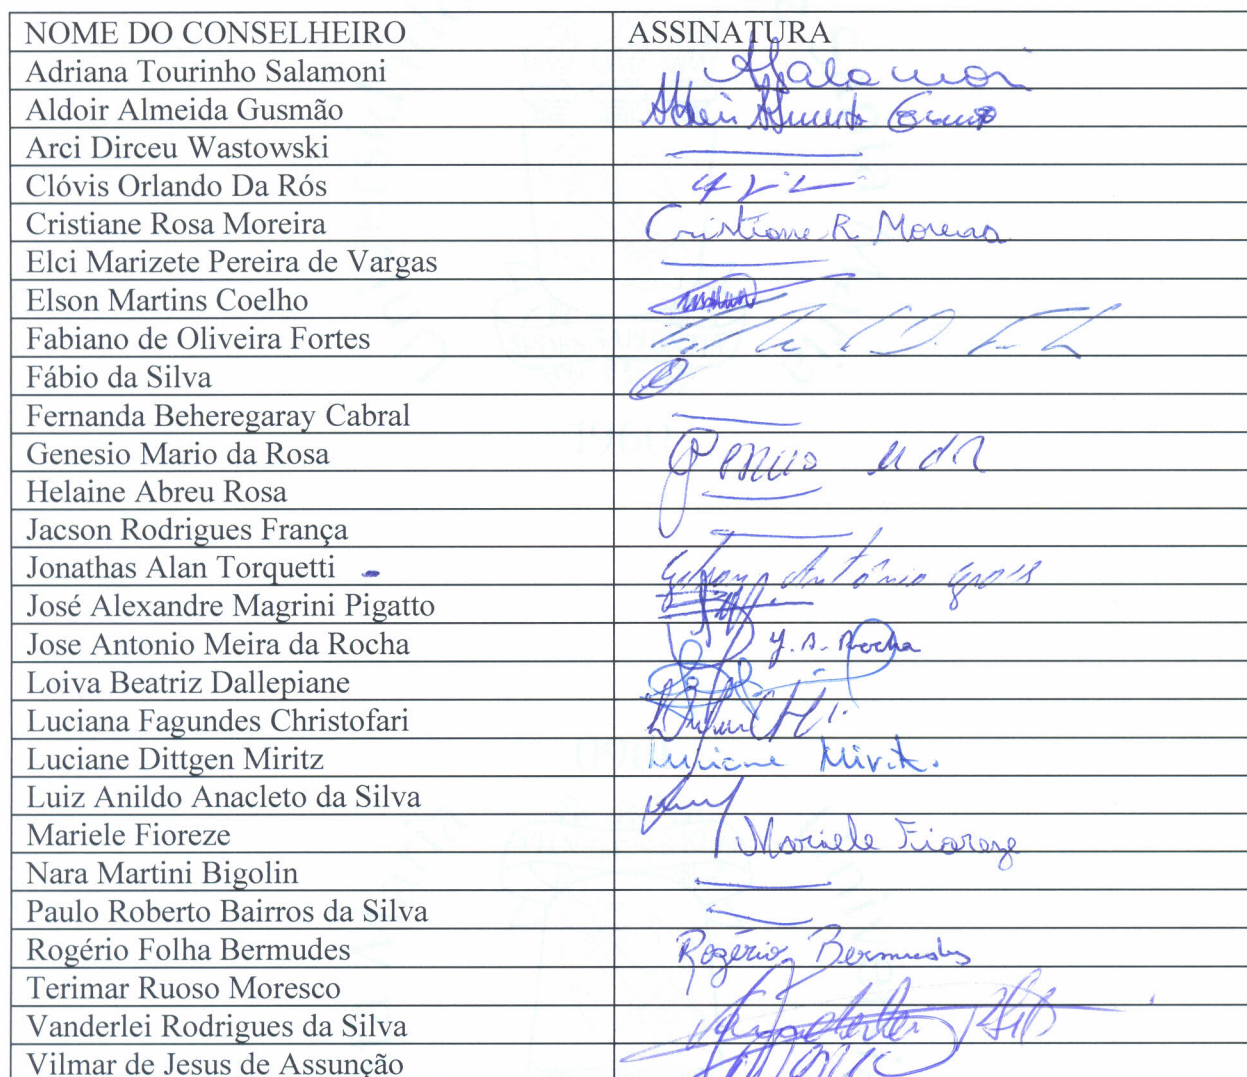 NOME DO CONSELHEIRO ASSINATURA
Adriana Tourinho Salamoni
Aldoir Almeida Gusmão
Arci Dirceu Wastowski
Clóvis Orlando Da Rós
Cristiane Rosa Moreira Cristiane R. Moreira
Elci Marizete Pereira de Vargas
Elson Martins Coelho
Fabiano de Oliveira Fortes
Fábio da Silva
Fernanda Beheregaray Cabral
Genesio Mario da Rosa
Helaine Abreu Rosa
Jacson Rodrigues França
Jonathas Alan Torquetti
José Alexandre Magrini Pigatto
Jose Antonio Meira da Rocha J. A. Rocha
Loiva Beatriz Dallepiane
Luciana Fagundes Christofari
Luciane Dittgen Miritz
Luiz Anildo Anacleto da Silva
Mariele Fioreze Mariele Fioreze
Nara Martini Bigolin
Paulo Roberto Bairros da Silva
Rogério Folha Bermudes Rogério Bermudes
Terimar Ruoso Moresco
Vanderlei Rodrigues da Silva
Vilmar de Jesus de Assunção